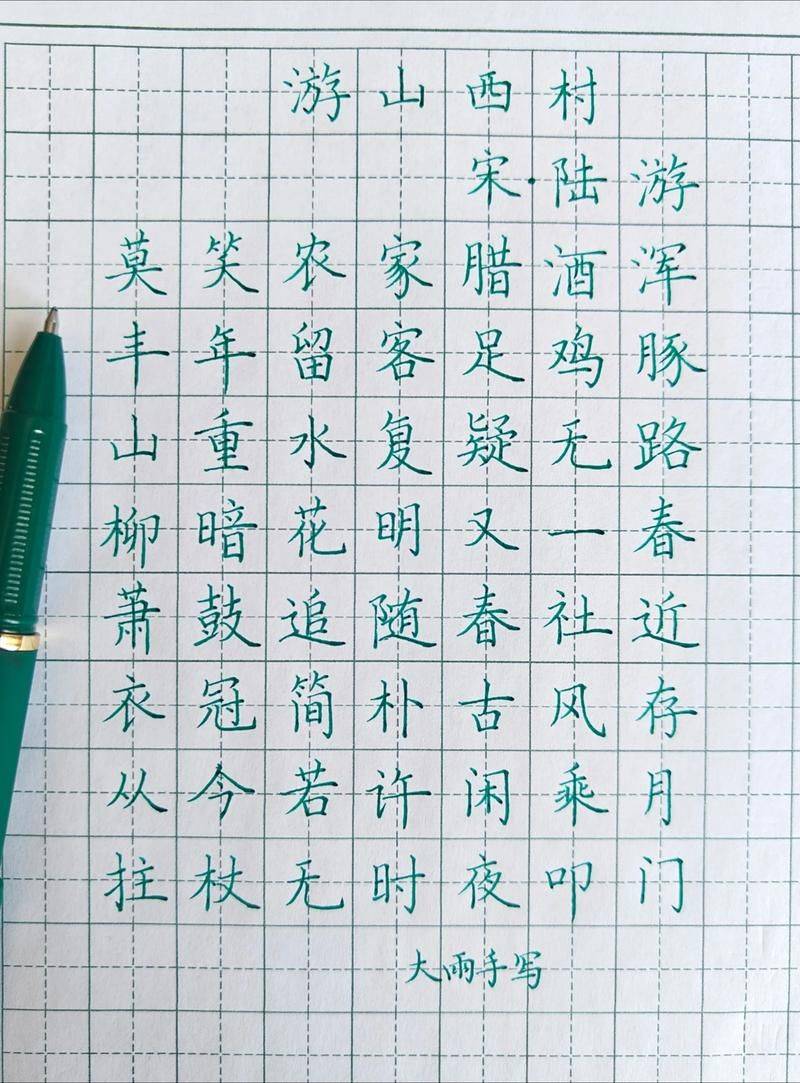 游山西村
宋·陆游
莫笑农家腊酒浑
丰年留客足鸡豚
山重水复疑无路
柳暗花明又一春
萧鼓追随春社近
衣冠简朴古风存
从今若许闲乘月
拄杖无时夜叩门
大雨手写